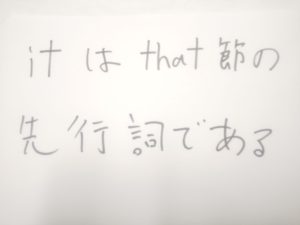 it は that 節の
先行詞である